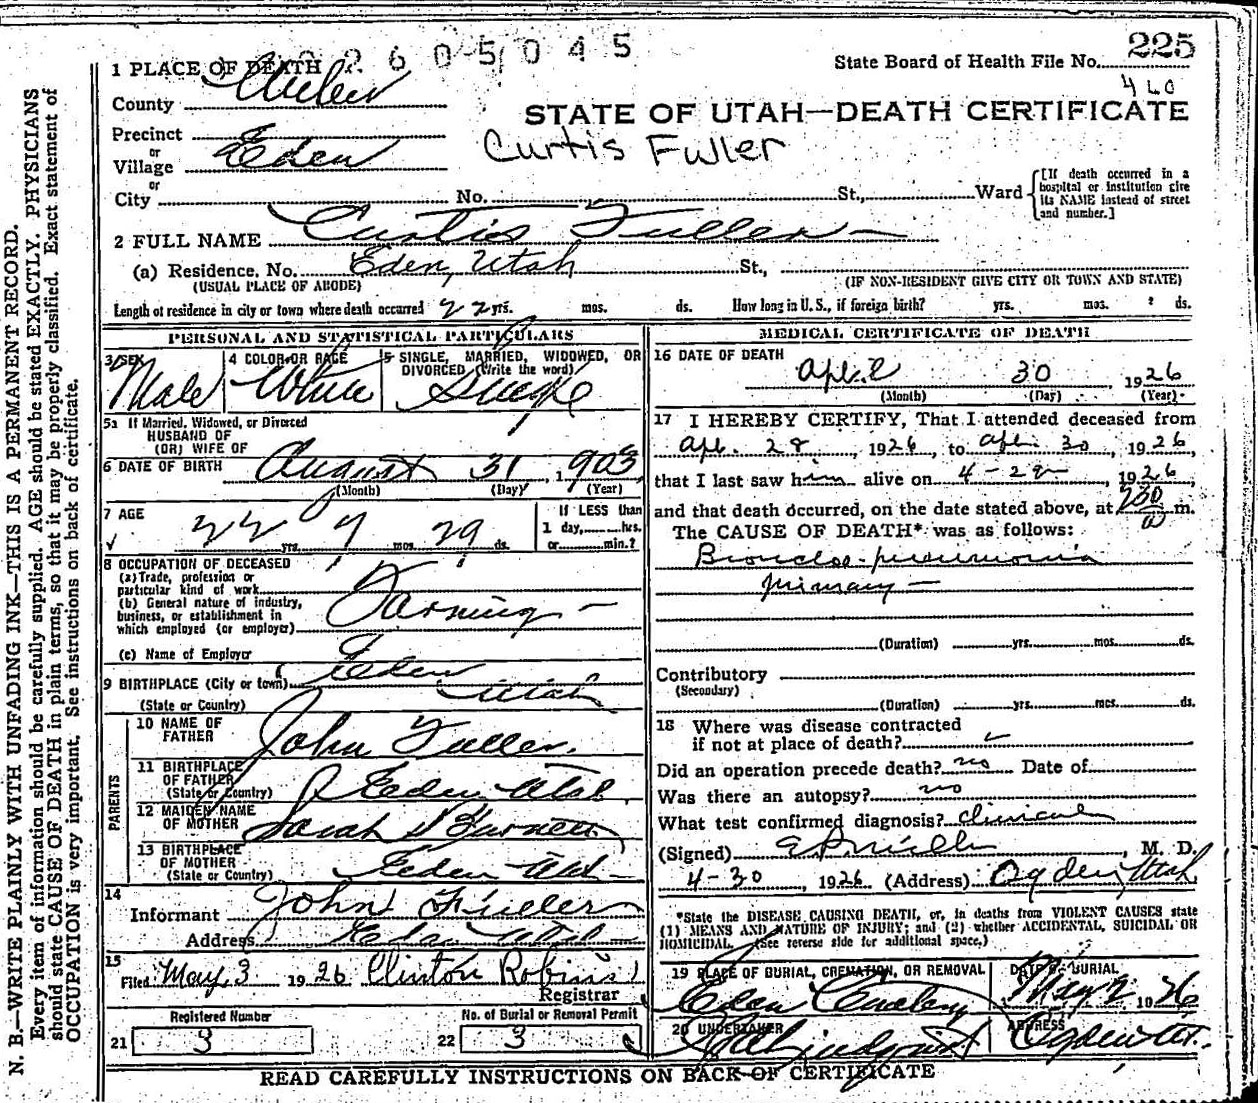 2605045
225
State Board of Health File No.
460
1 PLACE OF DEATH
County Weber
STATE OF UTAH—DEATH CERTIFICATE
Precinct
or
Village Eden
Curtis Fuller
or
City No. St., Ward
[If death occurred in a hospital or institution give its NAME instead of street and number.]
2 FULL NAME Curtis Fuller
(a) Residence. No. Eden, Utah St.,
(USUAL PLACE OF ABODE) (IF NON-RESIDENT GIVE CITY OR TOWN AND STATE)
Length of residence in city or town where death occurred 22 yrs. mos. ds. How long in U. S., if foreign birth? yrs. mos. ds.
PERSONAL AND STATISTICAL PARTICULARS
3 SEX Male
4 COLOR OR RACE White
5 SINGLE, MARRIED, WIDOWED, OR DIVORCED (Write the word) Single
5a If Married, Widowed, or Divorced
HUSBAND OF
(OR) WIFE OF
6 DATE OF BIRTH August 31, 1903
(Month) (Day) (Year)
7 AGE 22 yrs. 7 mos. 29 ds.
If LESS than
1 day, hrs.
or min.?
8 OCCUPATION OF DECEASED
(a) Trade, profession or
particular kind of work
(b) General nature of industry,
business, or establishment in
which employed (or employer)
Farming
(c) Name of Employer
9 BIRTHPLACE (City or town) Eden
(State or Country) Utah
PARENTS
10 NAME OF FATHER John Fuller
11 BIRTHPLACE OF FATHER (State or Country) Eden Utah
12 MAIDEN NAME OF MOTHER Sarah Burnett
13 BIRTHPLACE OF MOTHER (State or Country) Eden Utah
14
Informant John Fuller
Address Eden Utah
15
Filed May 3 1926 Clinton Robins
Registrar
Registered Number No. of Burial or Removal Permit
21 3 22 3
MEDICAL CERTIFICATE OF DEATH
16 DATE OF DEATH
April 30, 1926
(Month) (Day) (Year)
17 I HEREBY CERTIFY, That I attended deceased from
Apr. 28, 1926, to Apr. 30, 1926,
that I last saw him alive on 4-29, 1926,
and that death occurred, on the date stated above, at 230 a m.
The CAUSE OF DEATH* was as follows:
Broncho-pneumonia
primary
(Duration) yrs. mos. ds.
Contributory
(Secondary)
(Duration) yrs. mos. ds.
18 Where was disease contracted
if not at place of death?
Did an operation precede death? no Date of
Was there an autopsy? no
What test confirmed diagnosis? clinical
(Signed) , M. D.
4-30, 1926 (Address) Ogden Utah
*State the DISEASE CAUSING DEATH, or, in deaths from VIOLENT CAUSES state
(1) MEANS AND NATURE OF INJURY; and (2) whether ACCIDENTAL, SUICIDAL OR
HOMICIDAL. (See reverse side for additional space.)
19 PLACE OF BURIAL, CREMATION, OR REMOVAL DATE OF BURIAL
Eden Cemetery May 2 1926
20 UNDERTAKER ADDRESS
Lindquist Ogden Ut.
READ CAREFULLY INSTRUCTIONS ON BACK OF CERTIFICATE
N. B.—WRITE PLAINLY WITH UNFADING INK—THIS IS A PERMANENT RECORD.
Every item of information should be carefully supplied. AGE should be stated EXACTLY. PHYSICIANS
should state CAUSE OF DEATH in plain terms, so that it may be properly classified. Exact statement of
OCCUPATION is very important. See instructions on back of certificate.